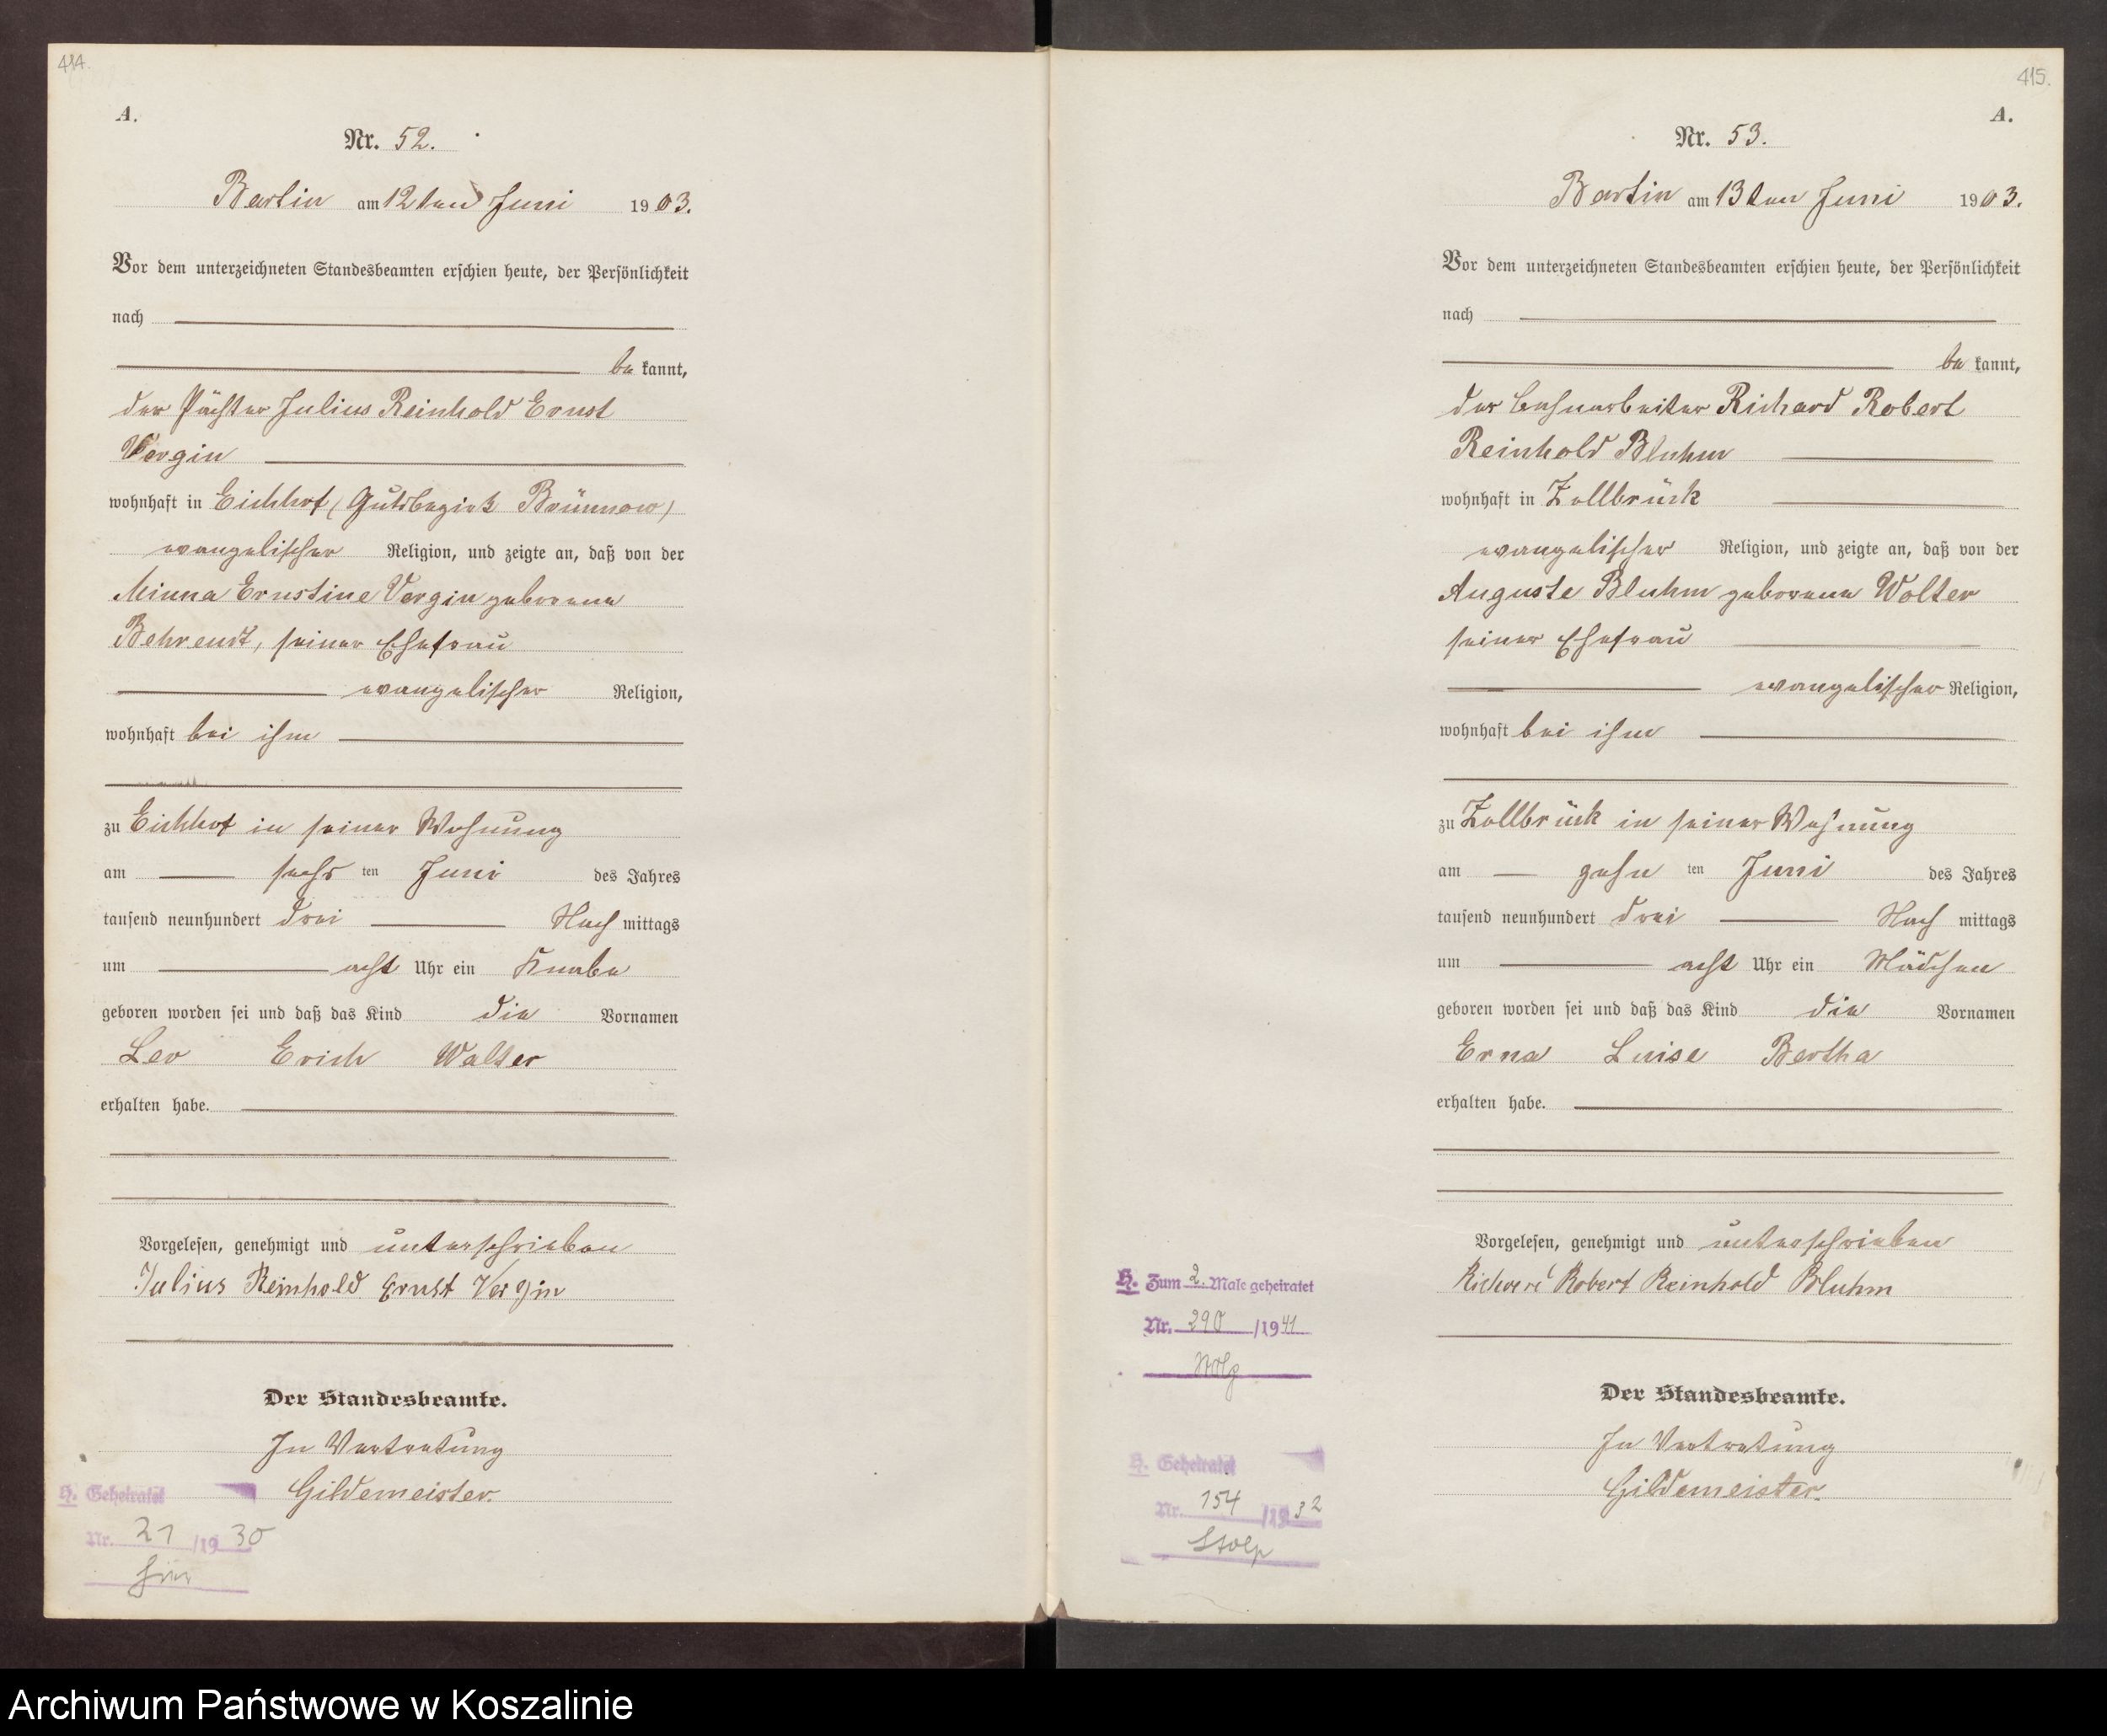 414.
A.
Nr. 52.
Bartin am 12ten Juni 1903.
Vor dem unterzeichneten Standesbeamten erschien heute, der Persönlichkeit
nach
be kannt,
der Pächter Julius Reinhold Ernst
Vergin
wohnhaft in Eichhof (Gutsbezirk Brünnow)
evangelischer Religion, und zeigte an, daß von der
Minna Ernstine Vergin geborene
Behrendt, seiner Ehefrau
evangelischer Religion,
wohnhaft bei ihm
zu Eichhof in seiner Wohnung
am sechs ten Juni des Jahres
tausend neunhundert drei Nach mittags
um acht Uhr ein Knabe
geboren worden sei und daß das Kind die Vornamen
Leo Erich Walter
erhalten habe.
Vorgelesen, genehmigt und unterschrieben
Julius Reinhold Ernst Vergin
Der Standesbeamte.
In Vertretung
Gildemeister.
H. Geheiratet
Nr. 21 /1930
415.
A.
Nr. 53.
Bartin am 13ten Juni 1903.
Vor dem unterzeichneten Standesbeamten erschien heute, der Persönlichkeit
nach
be kannt,
der Bahnarbeiter Richard Robert
Reinhold Bluhm
wohnhaft in Zollbrück
evangelischer Religion, und zeigte an, daß von der
Auguste Bluhm geborene Wolter
seiner Ehefrau
evangelischer Religion,
wohnhaft bei ihm
zu Zollbrück in seiner Wohnung
am zehn ten Juni des Jahres
tausend neunhundert drei Nach mittags
um acht Uhr ein Mädchen
geboren worden sei und daß das Kind die Vornamen
Erna Luise Bertha
erhalten habe.
Vorgelesen, genehmigt und unterschrieben
Richard Robert Reinhold Bluhm
Der Standesbeamte.
In Vertretung
Gildemeister.
H. Zum 2. Male geheiratet
Nr. 290 /1941
Stolp
H. Geheiratet
Nr. 154 /1932
Stolp
Archiwum Państwowe w Koszalinie